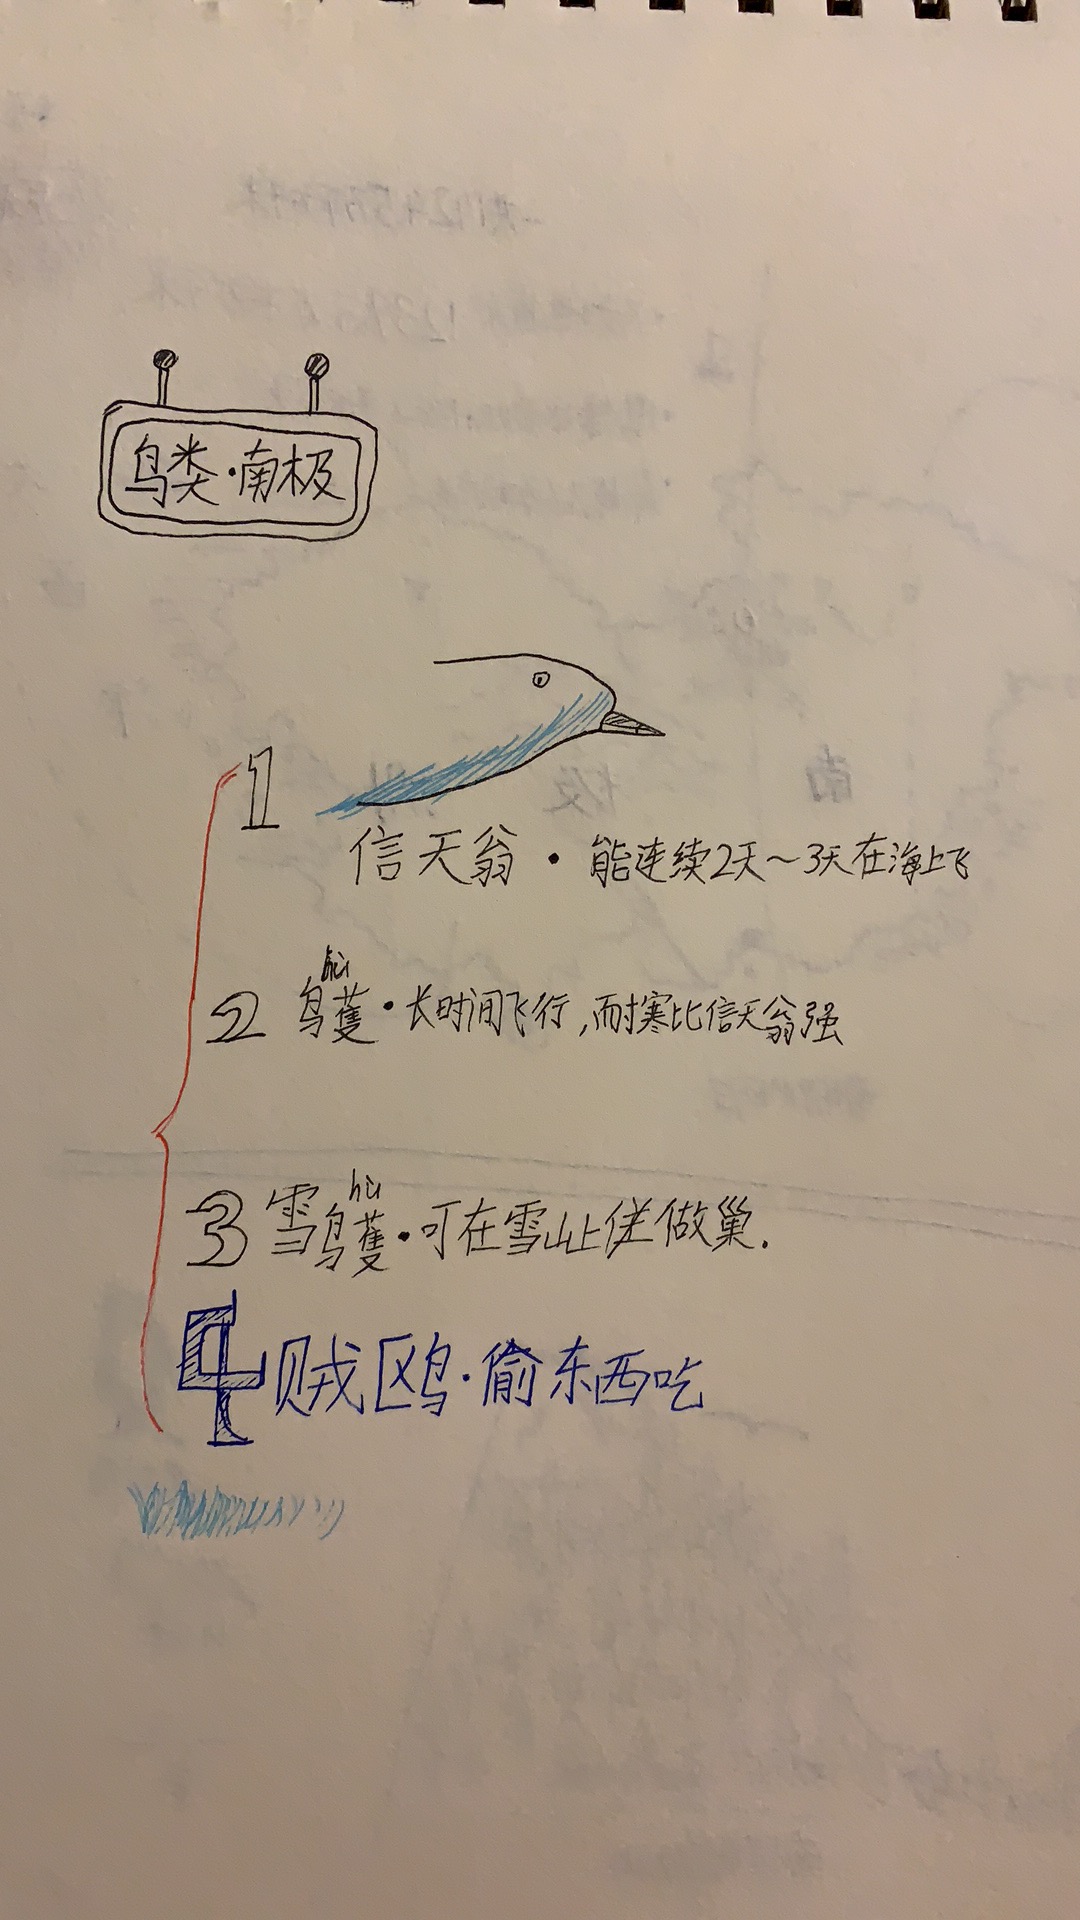 鸟类·南极
1
信天翁·能连续2天～3天在海上飞
hù
2 鸌·长时间飞行,耐寒比信天翁强
hù
3 雪鸌·可在雪山上做巢.
4 贼鸥·偷东西吃